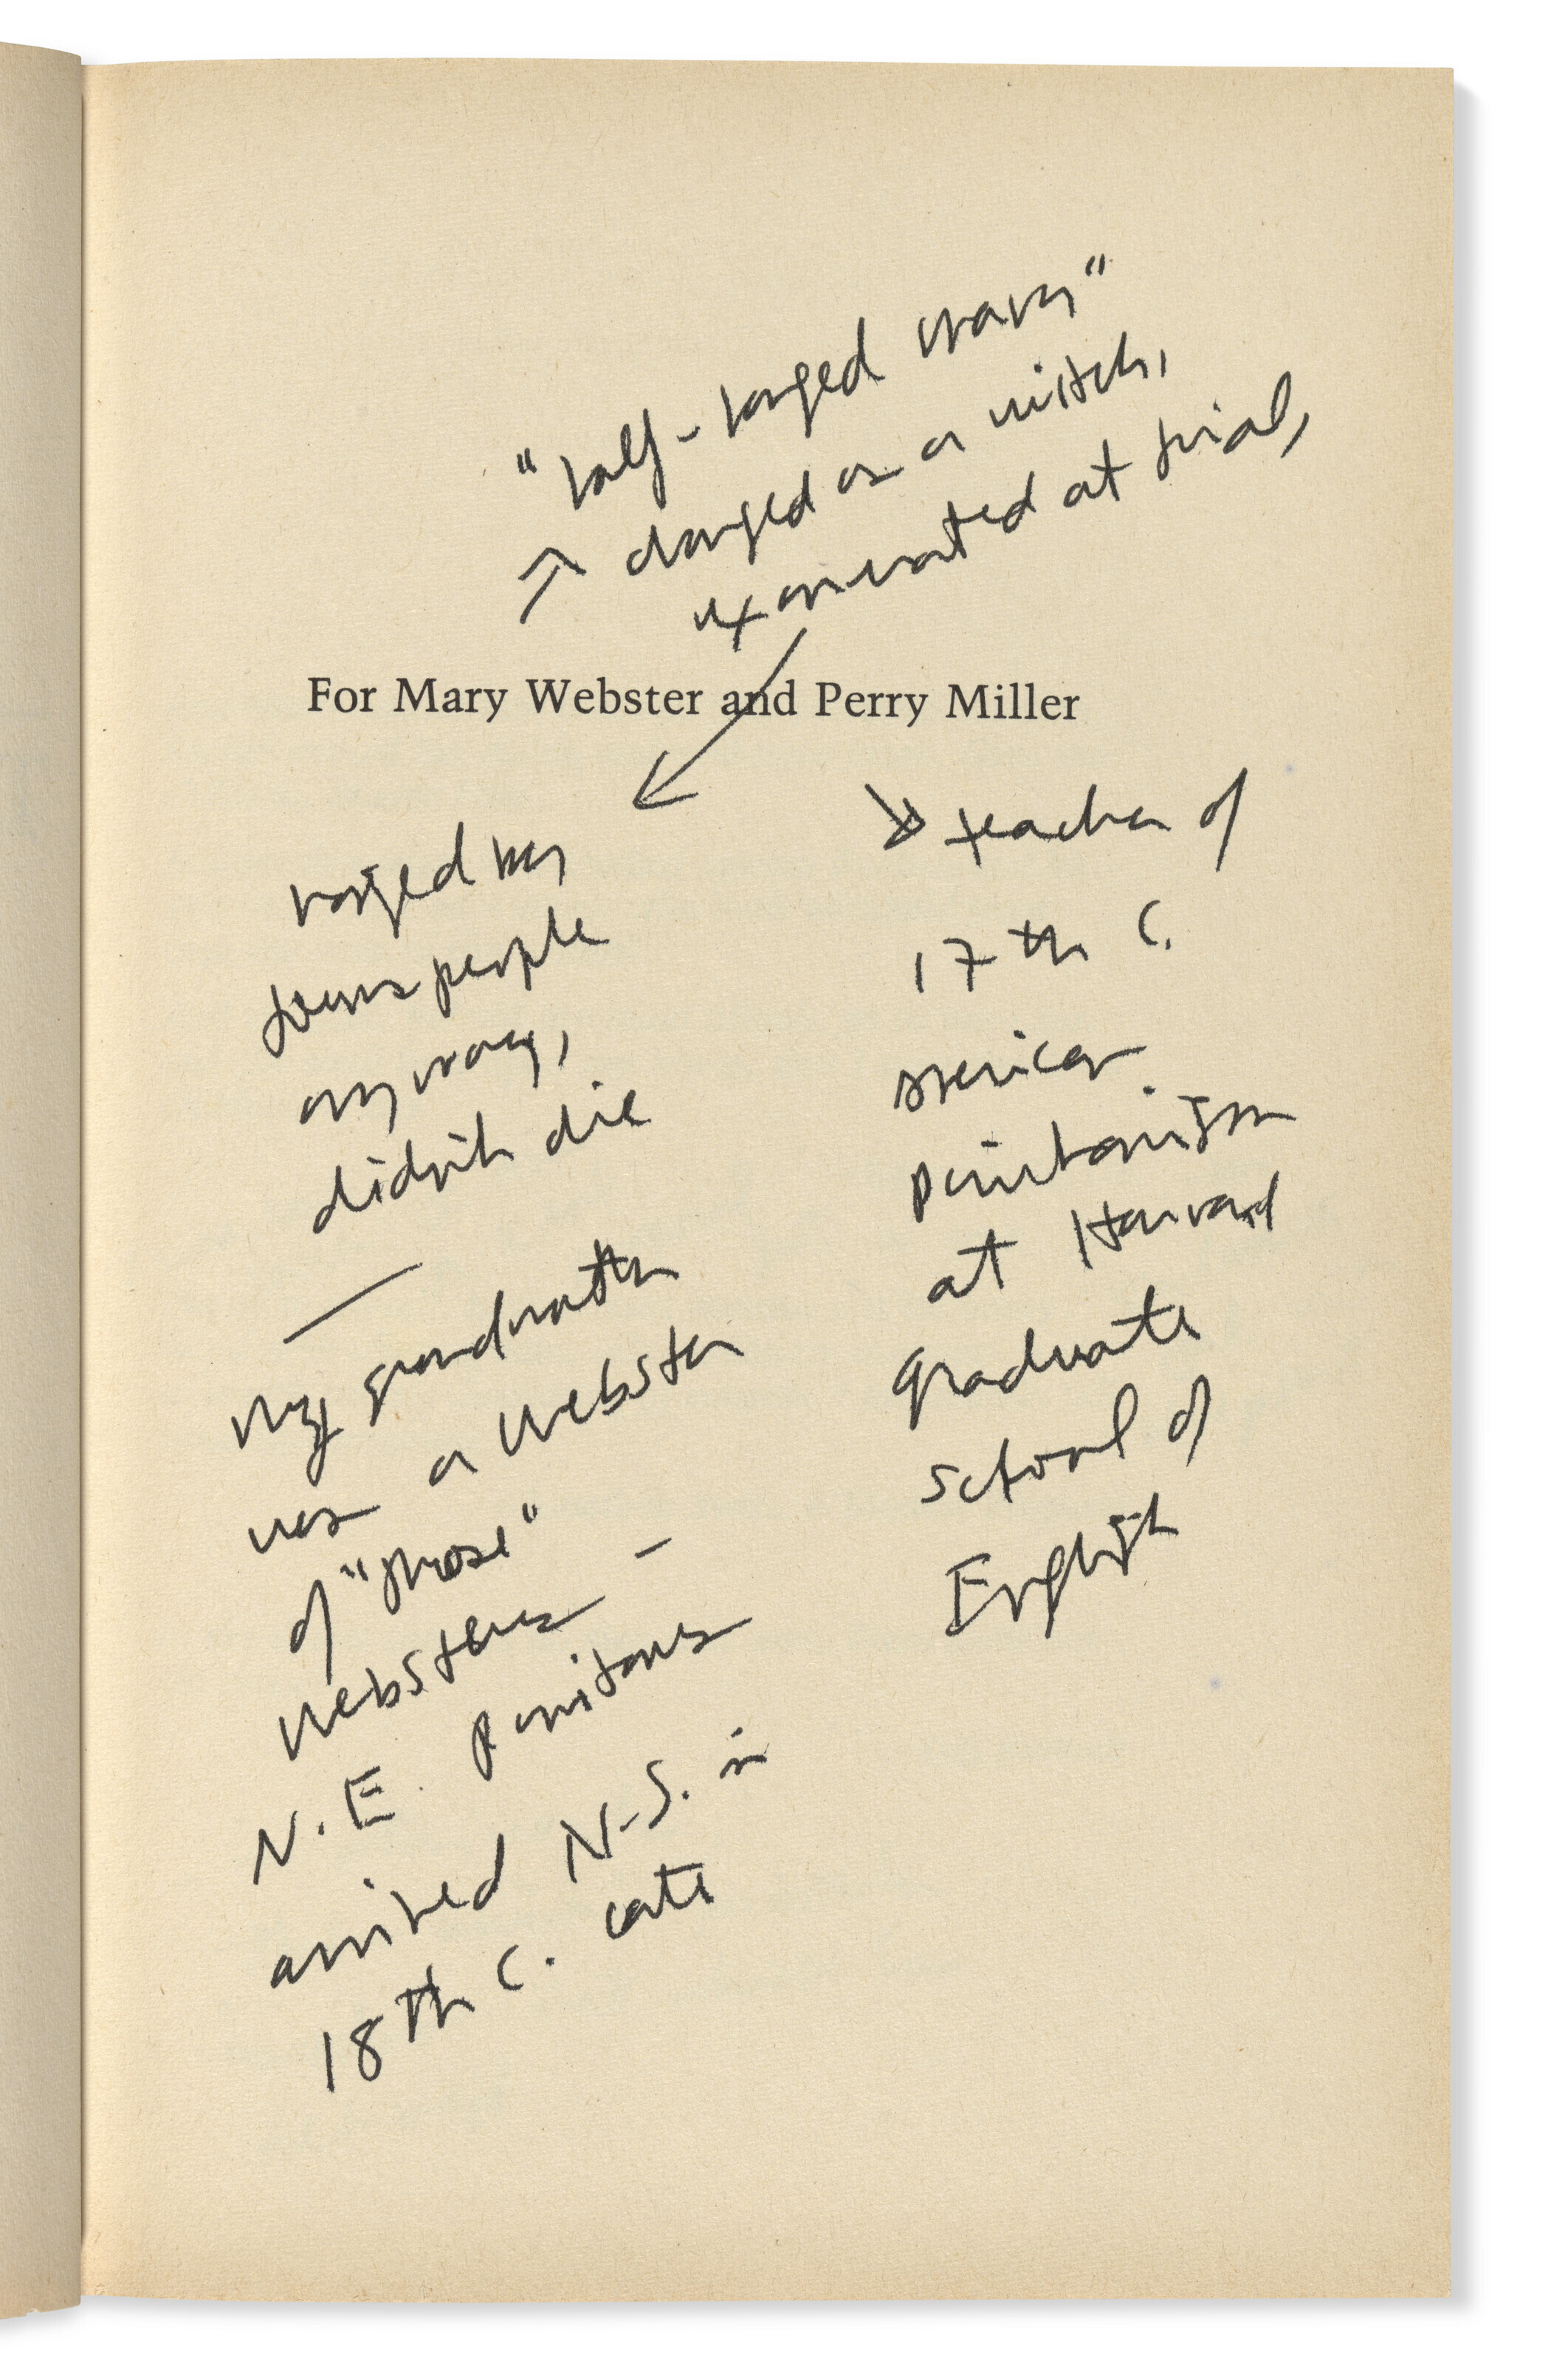 "half-hanged Mary"
charged as a witch,
exonerated at trial,
For Mary Webster and Perry Miller
hanged by
townspeople
anyway,
didn't die
—
My grandmother
was a Webster
of "those"
Websters —
N.E. puritans
arrived N.S. in
18th c. late
teacher of
17th c.
American
puritanism
at Harvard
graduate
school of
English